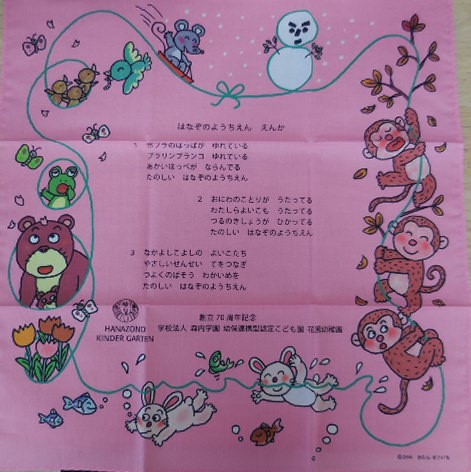 はなぞのようちえん　えんか
1　ポプラのはっぱが　ゆれている
ブラリンブランコ　ゆれている
あかいほっぺが　ならんでる
たのしい　はなぞのようちえん
2　おにわのことりが　うたってる
わたしらよいこも　うたってる
つるのきしょうが　ひかってる
たのしい　はなぞのようちえん
3　なかよしこよしの　よいこたち
やさしいせんせい　てをつなぎ
つよくのばそう　わかいめを
たのしい　はなぞのようちえん
HANAZONO
KINDER GARTEN
創立70周年記念
学校法人 森内学園 幼保連携型認定こども園 花園幼稚園